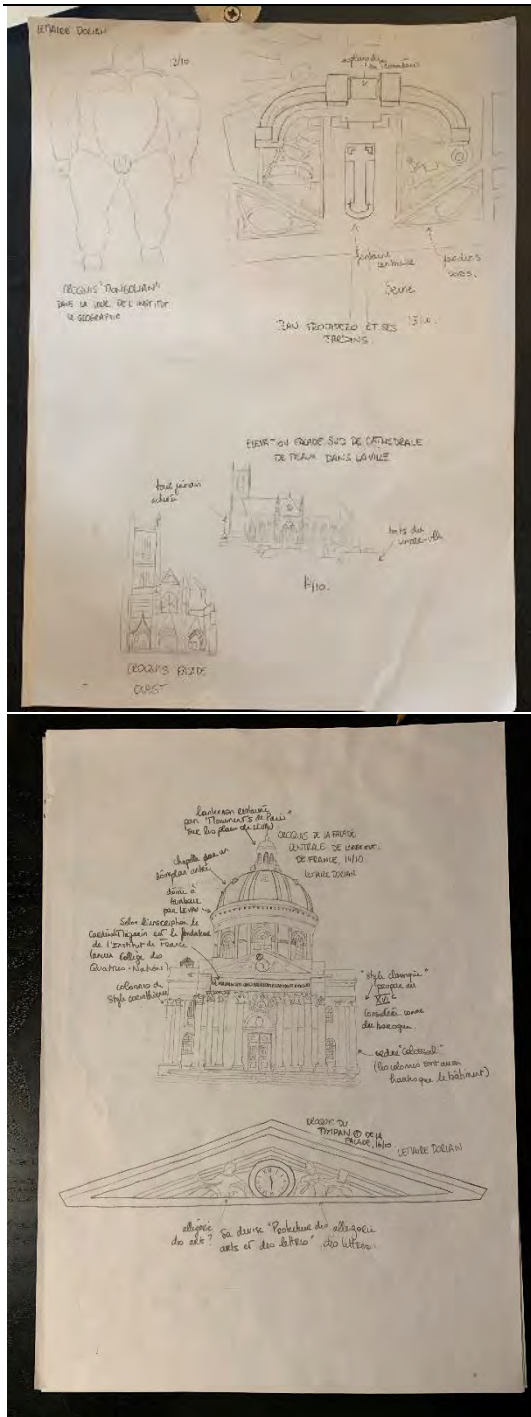 LEMAIRE DORIAN
12/10
esplanade
CROQUIS "MONGOLIAN"
DANS LA COUR DE L'INSTITUT
DE GEOGRAPHIE
fontaine
centrale
jardins
Seine
PLAN TROCADERO ET SES
JARDINS.
13/10.
ELEVATION FACADE SUD DE CATHEDRALE
DE MEAUX DANS LA VILLE
tour jamais
achevée
toits du
centre-ville
/10.
CROQUIS FACADE
OUEST
Lanternon restauré
par "Monuments de Paris"
sur les plans de LEVAU
CROQUIS DE LA FACADE
CENTRALE DE
DE FRANCE, 14/10
LEMAIRE DORIAN
chapelle
dôme à
tambour
par LEVAU
Selon l'inscription le
Cardinal Mazarin est le fondateur
de l'Institut de France
(ancien Collège des
Quatres-Nations).
colonnes de
style corinthien
"style classique"
propre au
considéré comme
du baroque
ordre "colossal"
(les colonnes sont aussi
hautes que le bâtiment)
CROQUIS DU
TYMPAN ① DE LA
FACADE, 14/10
LEMAIRE DORIAN
allégorie
des arts?
Sa devise "Protecteur des
arts et des lettres"
allégorie
des lettres.